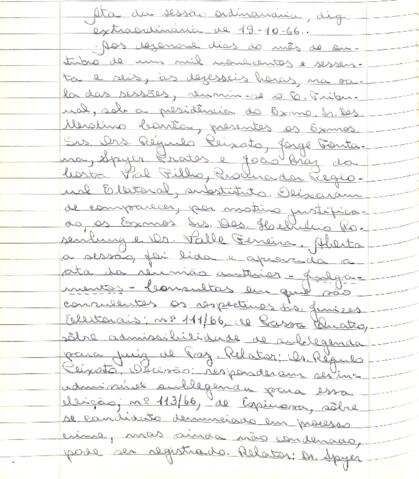 Ata da sessão ordinanária, digo
extraordinária de 19-10-66..
Aos dezenove dias do mês de ou-
tubro de um mil novecentos e sessen-
ta e seis, às dezesseis horas, na sa-
la das sessões, reuniu-se o E. Tribu-
nal, sob a presidência do Exmo. Sr. Des.
presentes os Exmos.
Srs. Drs. Régulo Peixoto, Jorge Fonta-
na, Spyer Prates e João Braz da
Costa Val Filho, Procurador Regio-
nal Eleitoral, substituto. Deixaram
de comparecer, por motivo justifica-
do, os Exmos Srs. Des. Ro-
senburg e Dr. Valle Ferreira. Aberta
a sessão, foi lida e aprovada a
ata da reunião anterior - Julga-
mentos - Consultas em que são
consulentes os respectivos drs. juízes
Eleitorais: nº 111/66, de Passa Quatro,
sôbre admissibilidade de sublegenda
para juiz de Paz. Relator: Dr. Régulo
Peixoto. Decisão: responderam ser in-
admissível sublegenda para essa
eleição; nº 113/66, de Espinosa, sôbre
se candidato denunciado em processo
crime, mas ainda não condenado,
pode ser registrado. Relator: Dr. Spyer